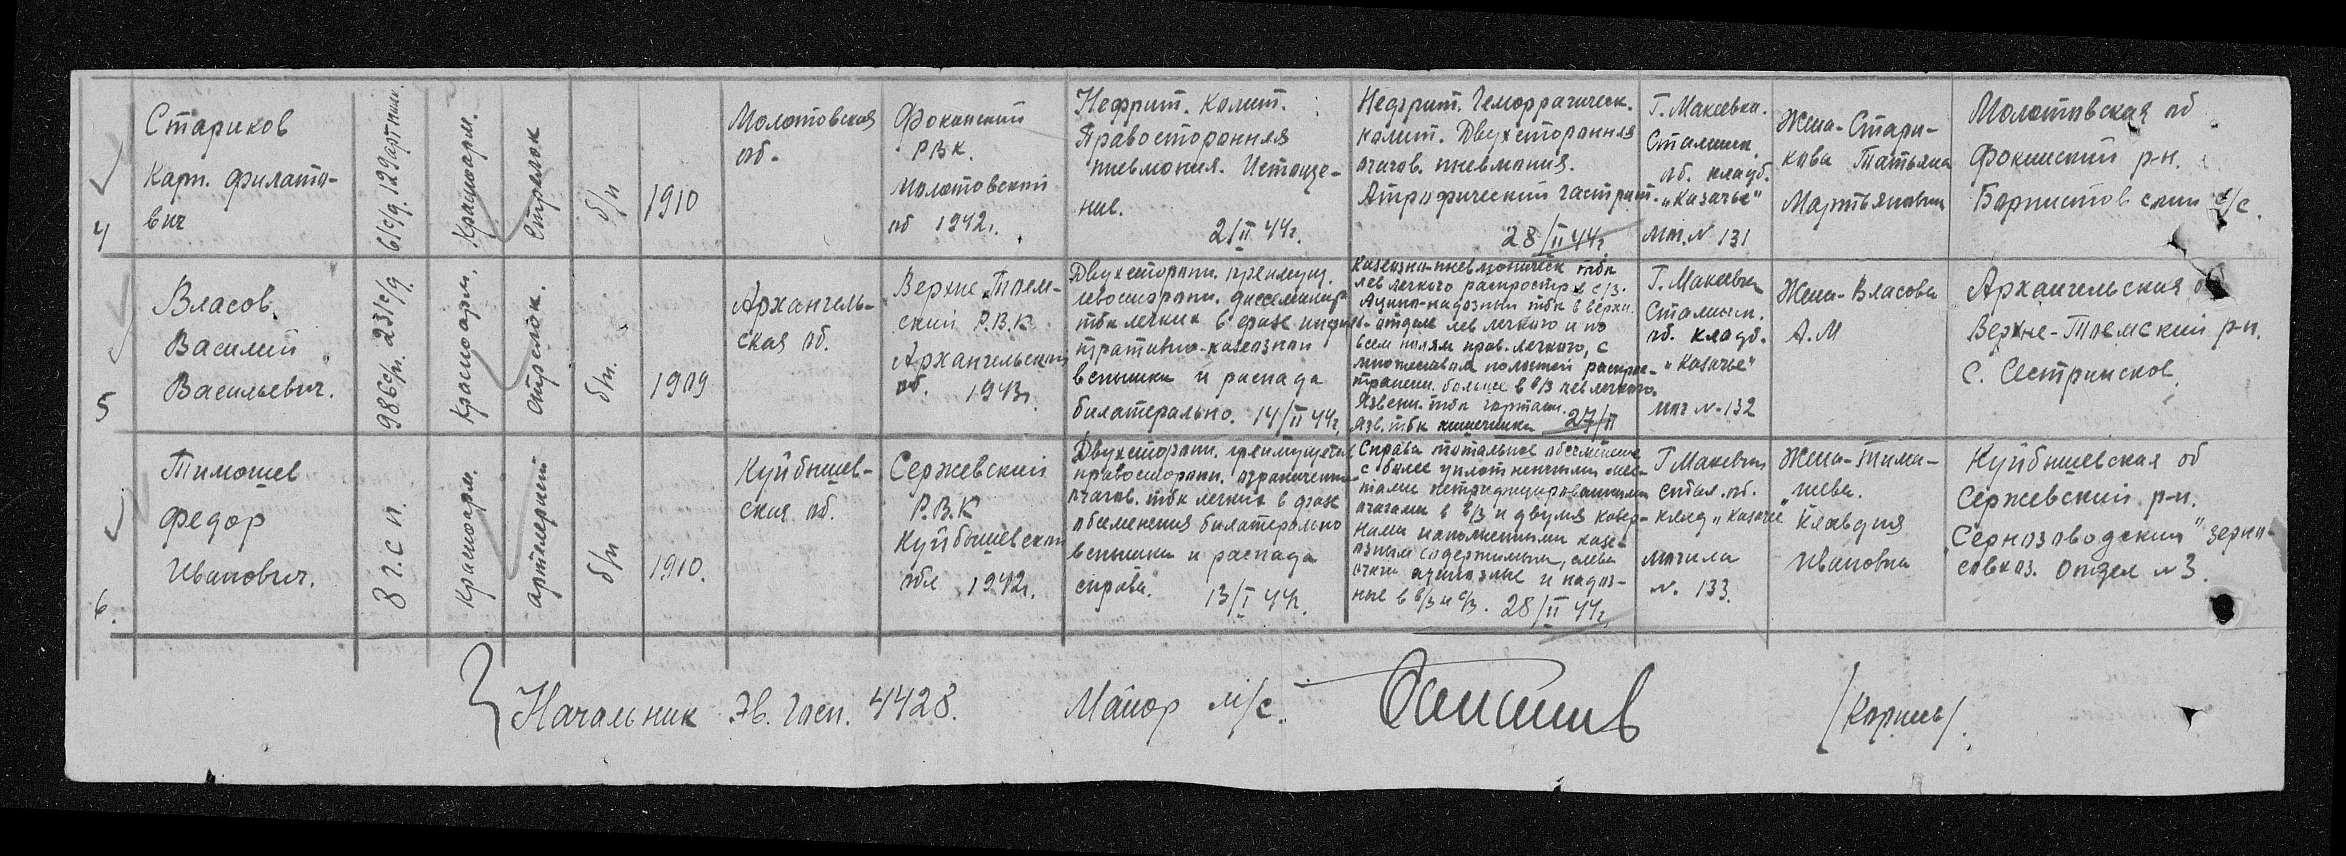 4
Стариков
Карп. Филато-
вич
61 с/д. 129 арт полк.
Красноарм.
Стрелок
б/п
1910
Молотовская
об.
Фокинский
РВК.
Молотовский
об 1942г.
Нефрит. Колит.
Правосторонняя
пневмония. Истоще-
ние.
2/II 44г.
Нефрит. Геморрагическ.
колит. Двухсторонняя
очагов. пневмония.
Атрофический гастрит.
28/II 44г.
Г. Макеевка.
Сталинск.
об. кладб.
"Казачье"
мог. № 131
Жена-Стари-
кова Татьяна
Мартьяновна
Молотовская об
Фокинский р-н.
с/с.
5
Власов.
Василий
Васильевич.
986 с/п. 231 с/д
Красноарм.
Стрелок.
б/п.
1909
Архангель-
ская об.
Верхне-Тоем-
ский Р.В.К
Архангельской
об. 1943г.
Двухсторонн. преимущ.
левосторонн.
тбк легких в фазе инфиль
тративно-казеозной
вспышки и распада
билатерально. 14/II 44г.
Казеозно-пневмоническ тбк
лев легкого распростр. с/з.
в верхн.
отделе лев легкого и по
всем полям прав. легкого, с
множеством полостей распрос-
транен. больше в в/з лев легкого.
Язвенн. тбк гортани.
язв. тбк кишечника 27/II
Г. Макеевка
Сталинск.
об. кладб.
"Казачье"
мог № 132
Жена-Власова
А.М
Архангельская об
Верхне-Тоемский р-н.
С. Сестринское
6.
Тимошев
Федор
Иванович.
8 г. с п.
Красноарм.
артелерист
б/п
1910.
Куйбышев-
ская об.
Сержевский
Р.В.К
Куйбышевской
обл 1942г.
Двухсторонн. преимуществ
правосторонн. ограниченный
очагов. тбк легких в фазе
обсеменения билатерально
вспышки и распада
справа. 13/I 44г.
Справа тотальное обсеменение
с более уплотненными мес-
тами
очагами в в/з и двумя кавер-
нами наполненными казе-
озным содержимым, слева
очаги ацинозные и нодоз-
ные в в/з и с/з. 28/II 44г.
Г Макеевка
стал. об.
клад "Казачье
могила
№ 133.
Жена-Тимо-
шева.
Клавдия
Ивановна
Куйбышевская об
Сержевский р-н.
"Серноводский" зерно-
совхоз. Отдел №3.
Начальник Эв. Госп. 4428. Майор м/с. /Корнев/.